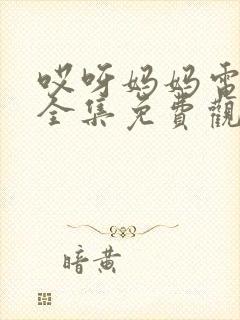 哎呀妈妈電
全集免費觀
暗黄